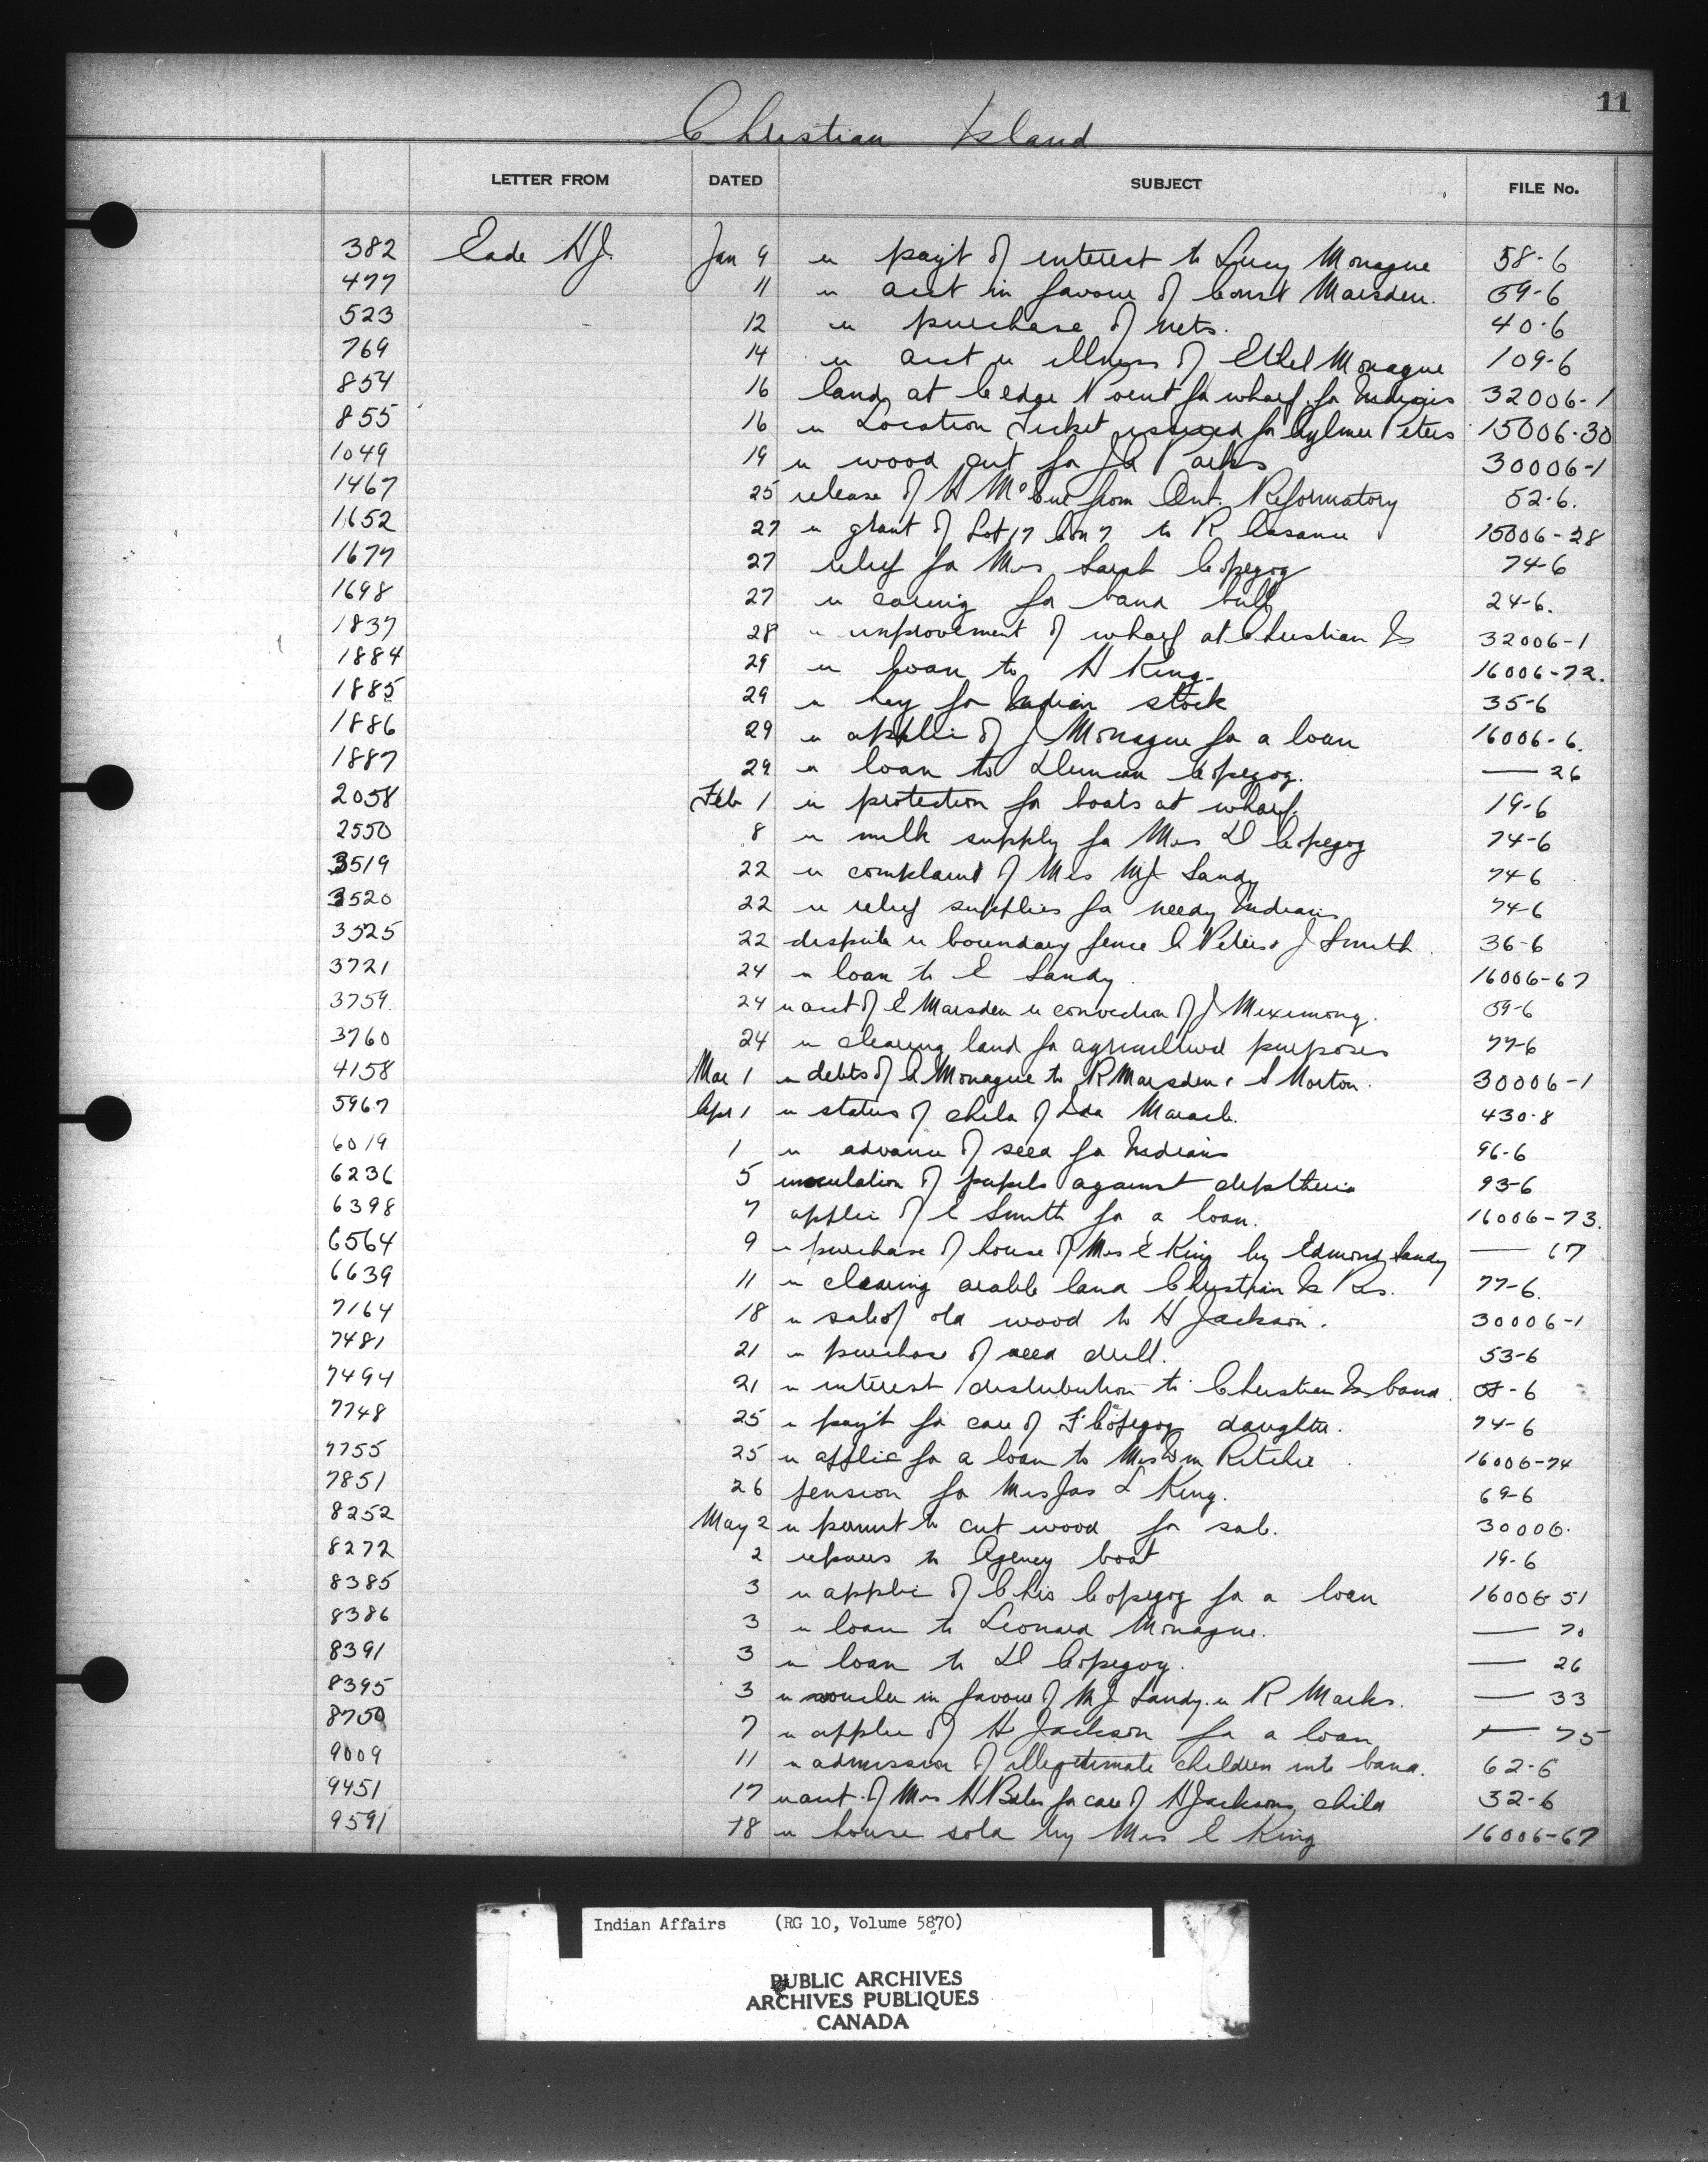 11
Christian Island
LETTER FROM DATED SUBJECT FILE No.
382 Eade H.J. Jan 9 re pay't of interest to Lucy Monague 58-6
477 11 re acct in favour of Const Marsden. 59-6
523 12 re purchase of nets. 40-6
769 14 re acct re illness of Ethel Monague 109-6
854 16 land at Cedar Point for wharf for Indians 32006-1
855 16 re Location Ticket issued for Aylmer Peters 15006-30
1049 19 re wood cut for Marks 30006-1
1467 25 release of H McCue from Ont. Reformatory 52-6.
1652 27 re grant of Lot 17 Con 7 to R Assance 15006-28
1677 27 relief for Mrs Sarah Copegog 74-6
1698 27 re caring for band bull 24-6.
1837 28 re improvement of wharf at Christian Is 32006-1
1884 29 re loan to H King. 16006-72.
1885 29 re hay for Indian stock 35-6
1886 29 re applic of J Monague for a loan 16006-6.
1887 29 re loan to Duncan Copegog. — 26
2058 Feb 1 re protection for boats at wharf. 19-6
2550 8 re milk supply for Mrs D Copegog 74-6
3519 22 re complaint of Mrs MJ Sandy 74-6
3520 22 re relief supplies for needy Indians 74-6
3525 22 dispute re boundary fence C Peters & J Smith 36-6
3721 24 re loan to E Sandy. 16006-67
3759 24 re acct of E Marsden re conviction of J Mixemong. 59-6
3760 24 re clearing land for agricultural purposes 77-6
4158 Mar 1 re debts of A Monague to R Marsden & S Norton. 30006-1
5967 Apr 1 re status of child of Ida Maracle. 430-8
6019 1 re advance of seed for Indians 96-6
6236 5 innoculation of pupils against diphtheria 93-6
6398 7 applic of C Smith for a loan. 16006-73.
6564 9 re purchase of house of Mrs E King by Edmond Sandy — 67
6639 11 re clearing arable land Christian Is Res. 77-6.
7164 18 re sale of old wood to H Jackson. 30006-1
7481 21 re purchase of seed drill. 53-6
7494 21 re interest distribution to Christian Is band. 58-6
7748 25 re pay't for care of F Copegog daughter. 74-6
7755 25 re applic for a loan to Mrs Wm Ritchie 16006-74
7851 26 pension for Mrs Jas L King. 69-6
8252 May 2 re permit to cut wood for sale. 30006.
8272 2 repairs to Agency boat 19-6
8385 3 re applic of Chris Copegog for a loan 16006-51
8386 3 re loan to Leonard Monague. — 70
8391 3 re loan to D Copegog. — 26
8395 3 re voucher in favour of M J Sandy re R Marks. — 33
8750 7 re applic of H Jackson for a loan — 75
9009 11 re admission of illegitimate children into band. 62-6
9451 17 re acct of Mrs H for care of H Jacksons child 32-6
9591 18 re house sold by Mrs E King 16006-67
Indian Affairs (RG 10, Volume 5870)
PUBLIC ARCHIVES
ARCHIVES PUBLIQUES
CANADA